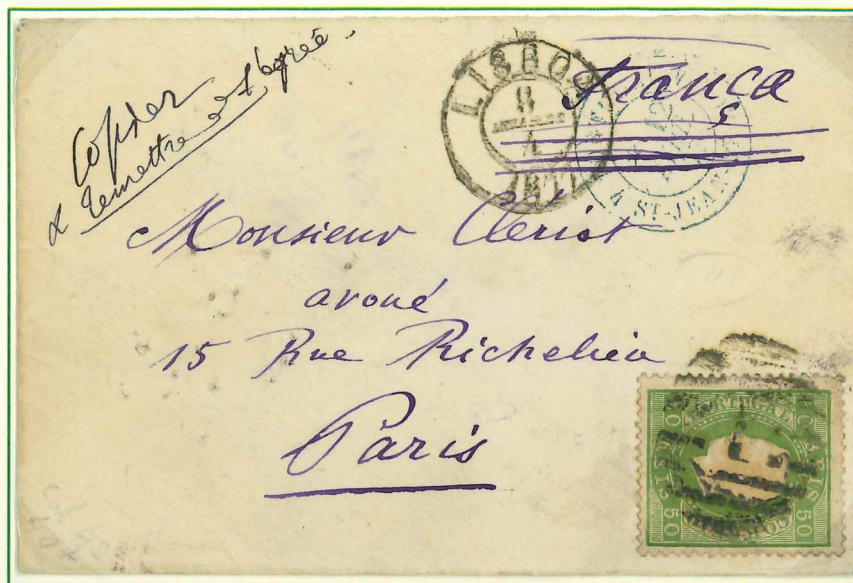 Copier
& remettre
LISBOA
8
4
1877
França
4 ST-JEAN
Monsieur Cleriot
avoué
15 Rue Richelieu
Paris
PORTUGAL
50 REIS 50